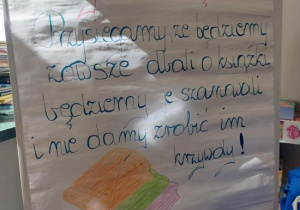 Przysięgamy, że będziemy
zawsze dbali o książki
będziemy je szanowali
i nie damy zrobić im
krzywdy!